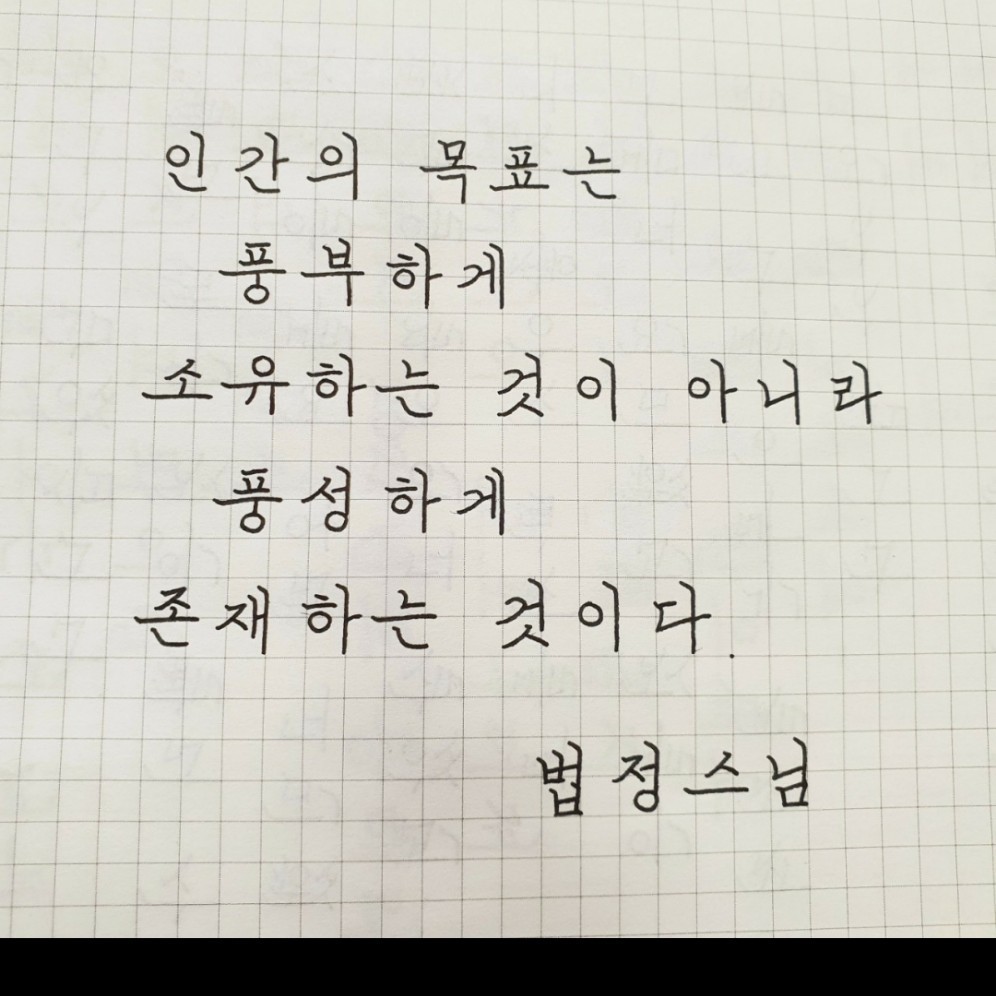 인간의 목표는
풍부하게
소유하는 것이 아니라
풍성하게
존재하는 것이다.
법정스님